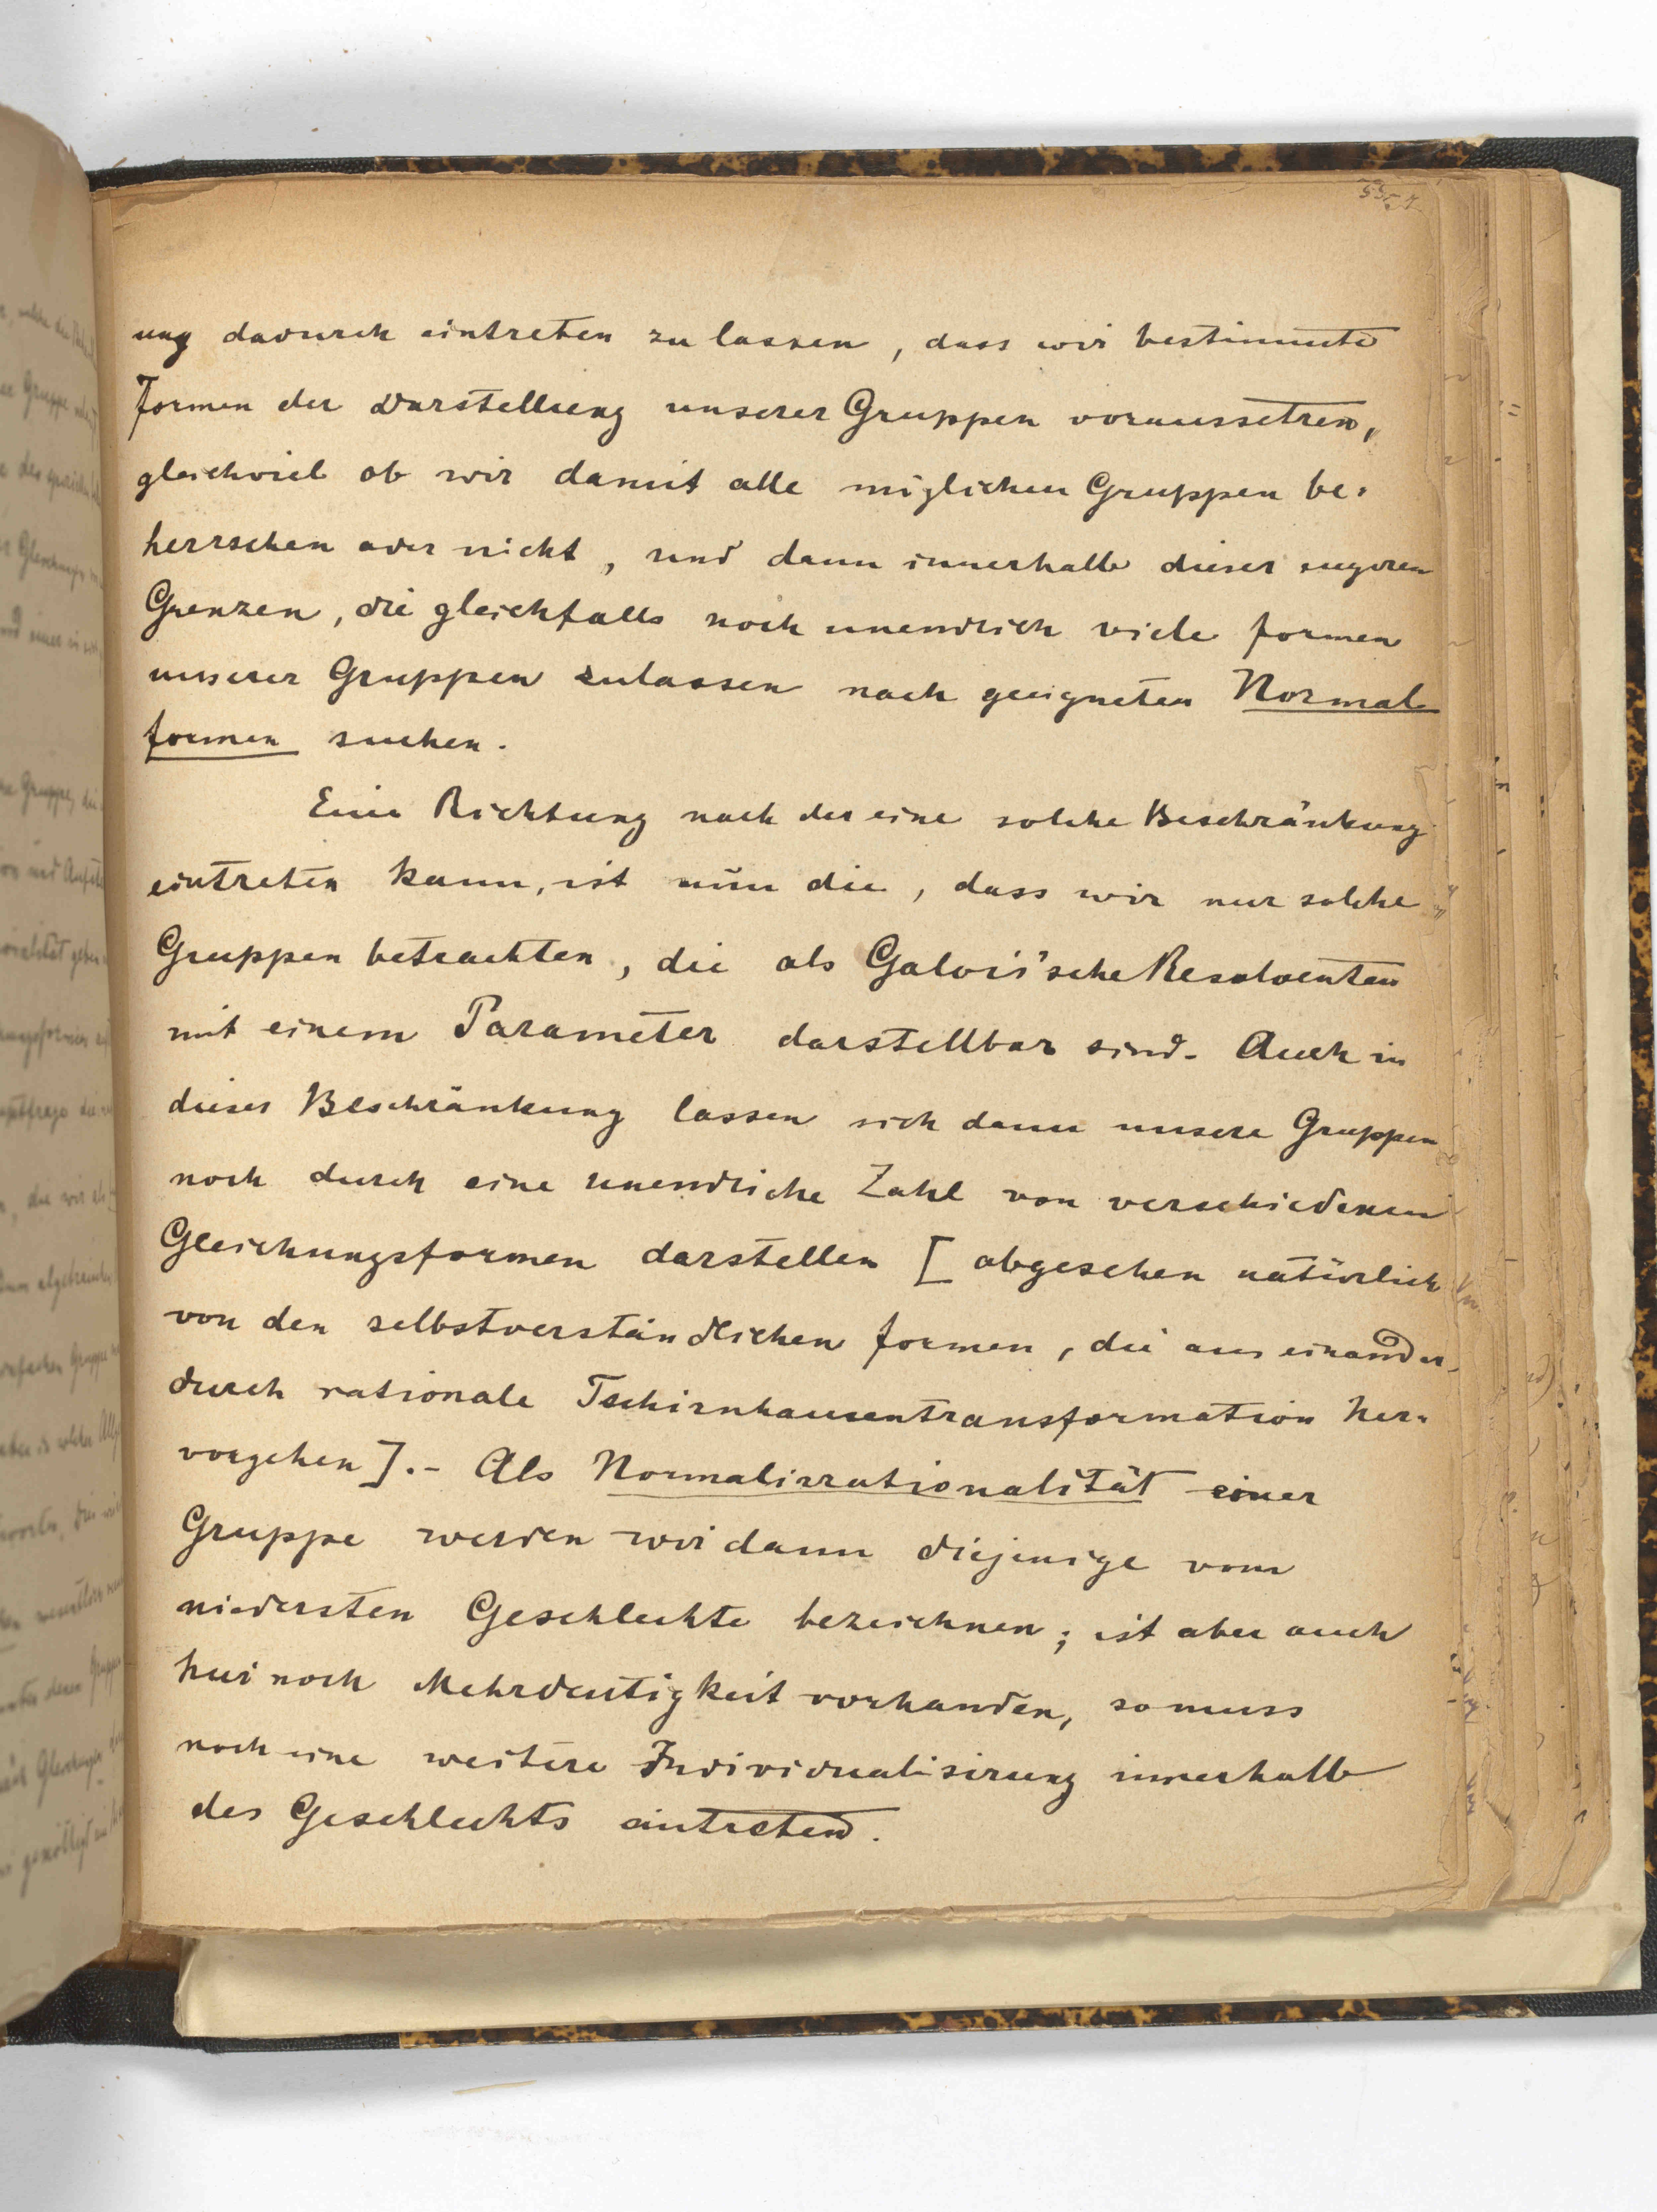 ung dadurch eintreten zu lassen, dass wir bestimmte
Formen der Darstellung unserer Gruppen voraussetzen,
gleichviel ob wir damit alle möglichen Gruppen be-
herrschen oder nicht, und dann innerhalb dieser engeren
Grenzen, die gleichfalls noch unendlich viele Formen
unserer Gruppen zulassen nach geeigneten Normal-
formen suchen.
Eine Richtung nach der eine solche Beschränkung
eintreten kann, ist nun die, dass wir nur solche
Gruppen betrachten, die als Galois'sche Resolventen
mit einem Parameter darstellbar sind. Auch in
dieser Beschränkung lassen sich dann unsere Gruppen
noch durch eine unendliche Zahl von verschiedenen
Gleichungsformen darstellen [abgesehen natürlich
von den selbstverständlichen Formen, die aus einander
durch rationale Tschirnhausentransformation her-
vorgehen]. - Als Normalirrationalität einer
Gruppe werden wir dann diejenige vom
niedersten Geschlechte bezeichnen; ist aber auch
hier noch Mehrdeutigkeit vorhanden, so muss
noch eine weitere Individualisirung innerhalb
des Geschlechts eintreten.